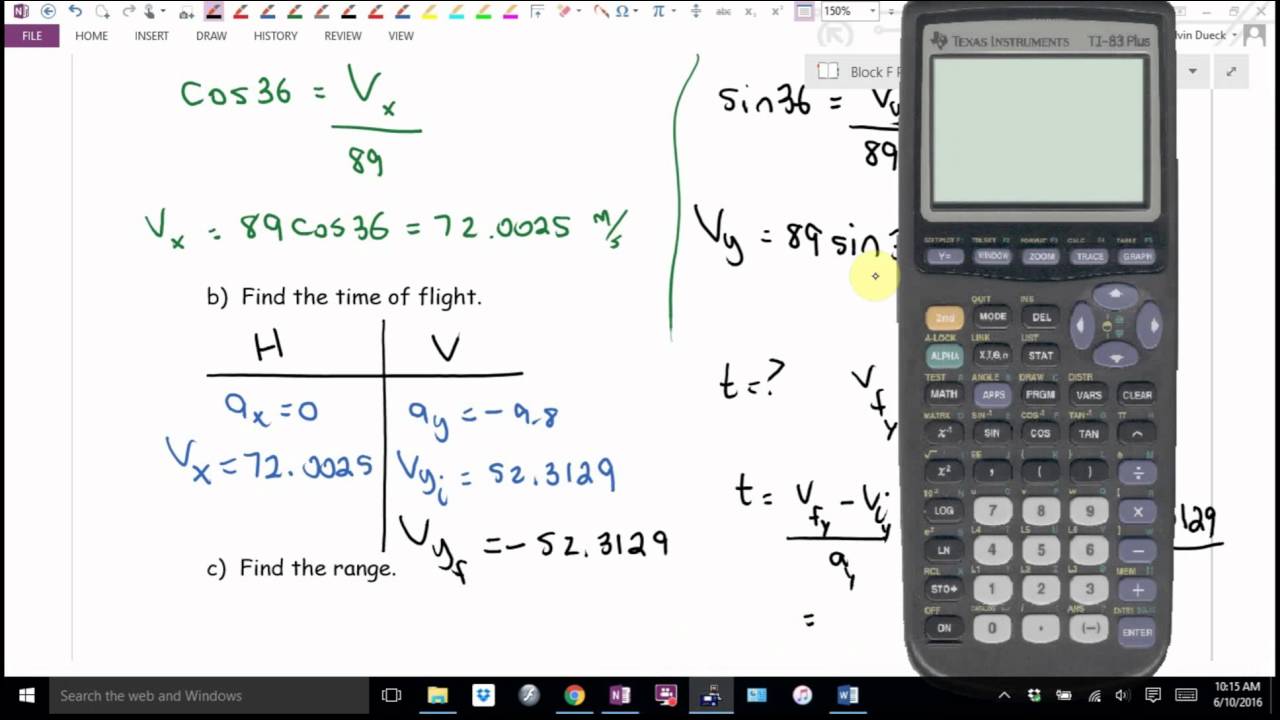 150%
FILE HOME INSERT DRAW HISTORY REVIEW VIEW
vin Dueck
Block F P
cos36 = Vx
89
Vx = 89cos36 = 72.0025 m/s
sin36 = V
89
Vy = 89 sin3
b) Find the time of flight.
H V
ax = 0 ay = -9.8
Vx = 72.0025 Vyi = 52.3129
Vyf = -52.3129
c) Find the range.
t = ?
Vfy
t = Vfy - Viy
ay
129
=
TEXAS INSTRUMENTS TI-83 Plus
STAT PLOT F1 TBLSET F2 FORMAT F3 CALC F4 TABLE F5
Y= WINDOW ZOOM TRACE GRAPH
QUIT INS
2nd MODE DEL
A-LOCK LINK LIST
ALPHA X,T,θ,n STAT
TEST A ANGLE B DRAW C DISTR
MATH APPS PRGM VARS CLEAR
MATRX D SIN⁻¹ E COS⁻¹ F TAN⁻¹ G π H
x⁻¹ SIN COS TAN ^
x² , ( ) ÷
LOG 7 8 9 ×
LN 4 5 6 −
RCL X L1 Y L2 Z L3 MEM
STO▸ 1 2 3 +
OFF CATALOG ANS ENTRY SOLVE
ON 0 . (−) ENTER
Search the web and Windows
10:15 AM
6/10/2016